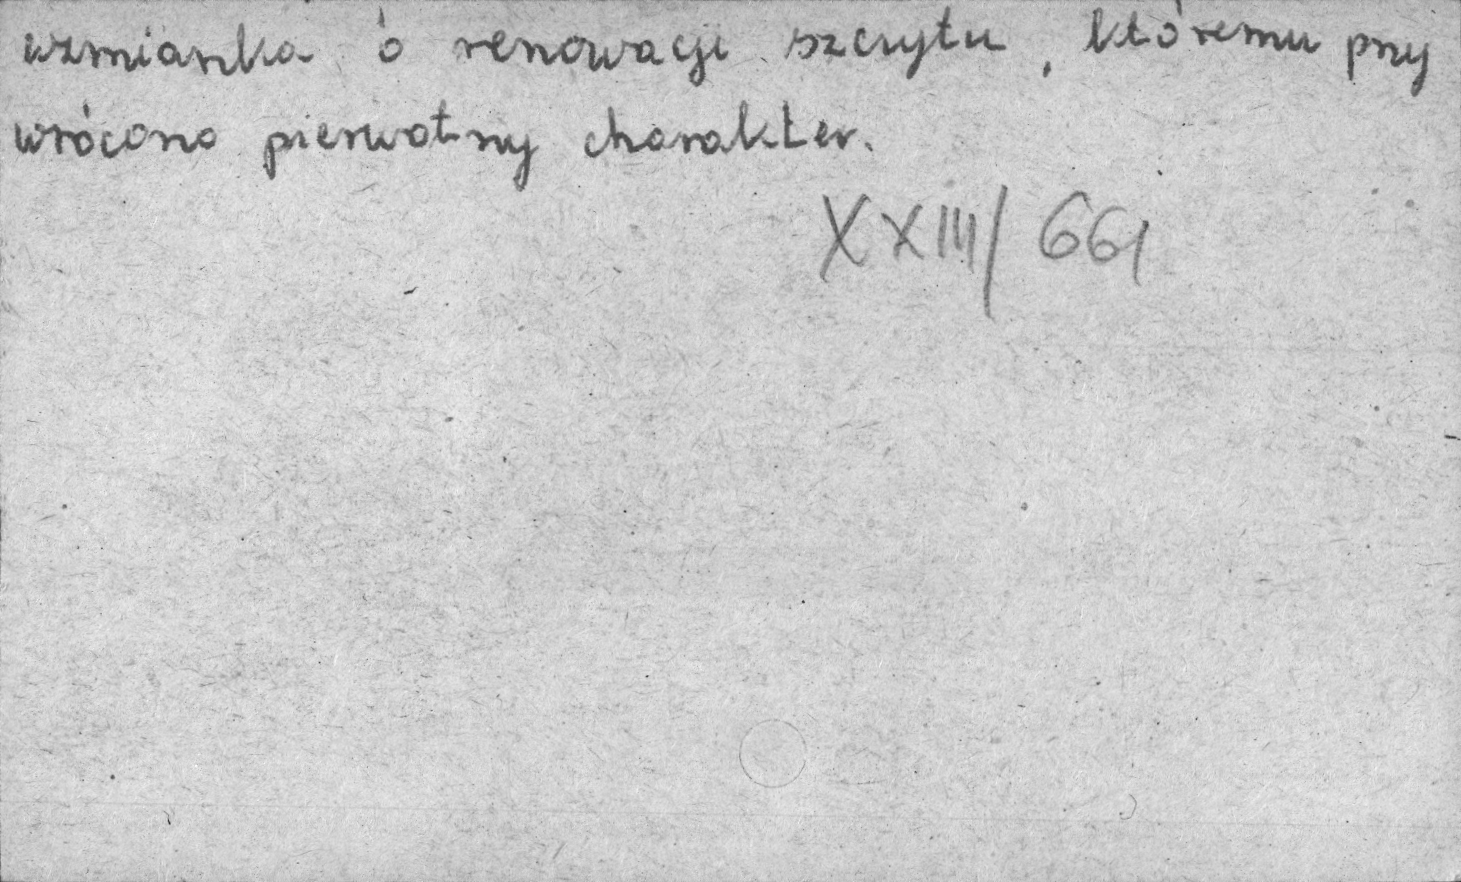 wzmianka o renowacji szczytu, któremu przy
wrócono pierwotny charakter.
XXIII/661